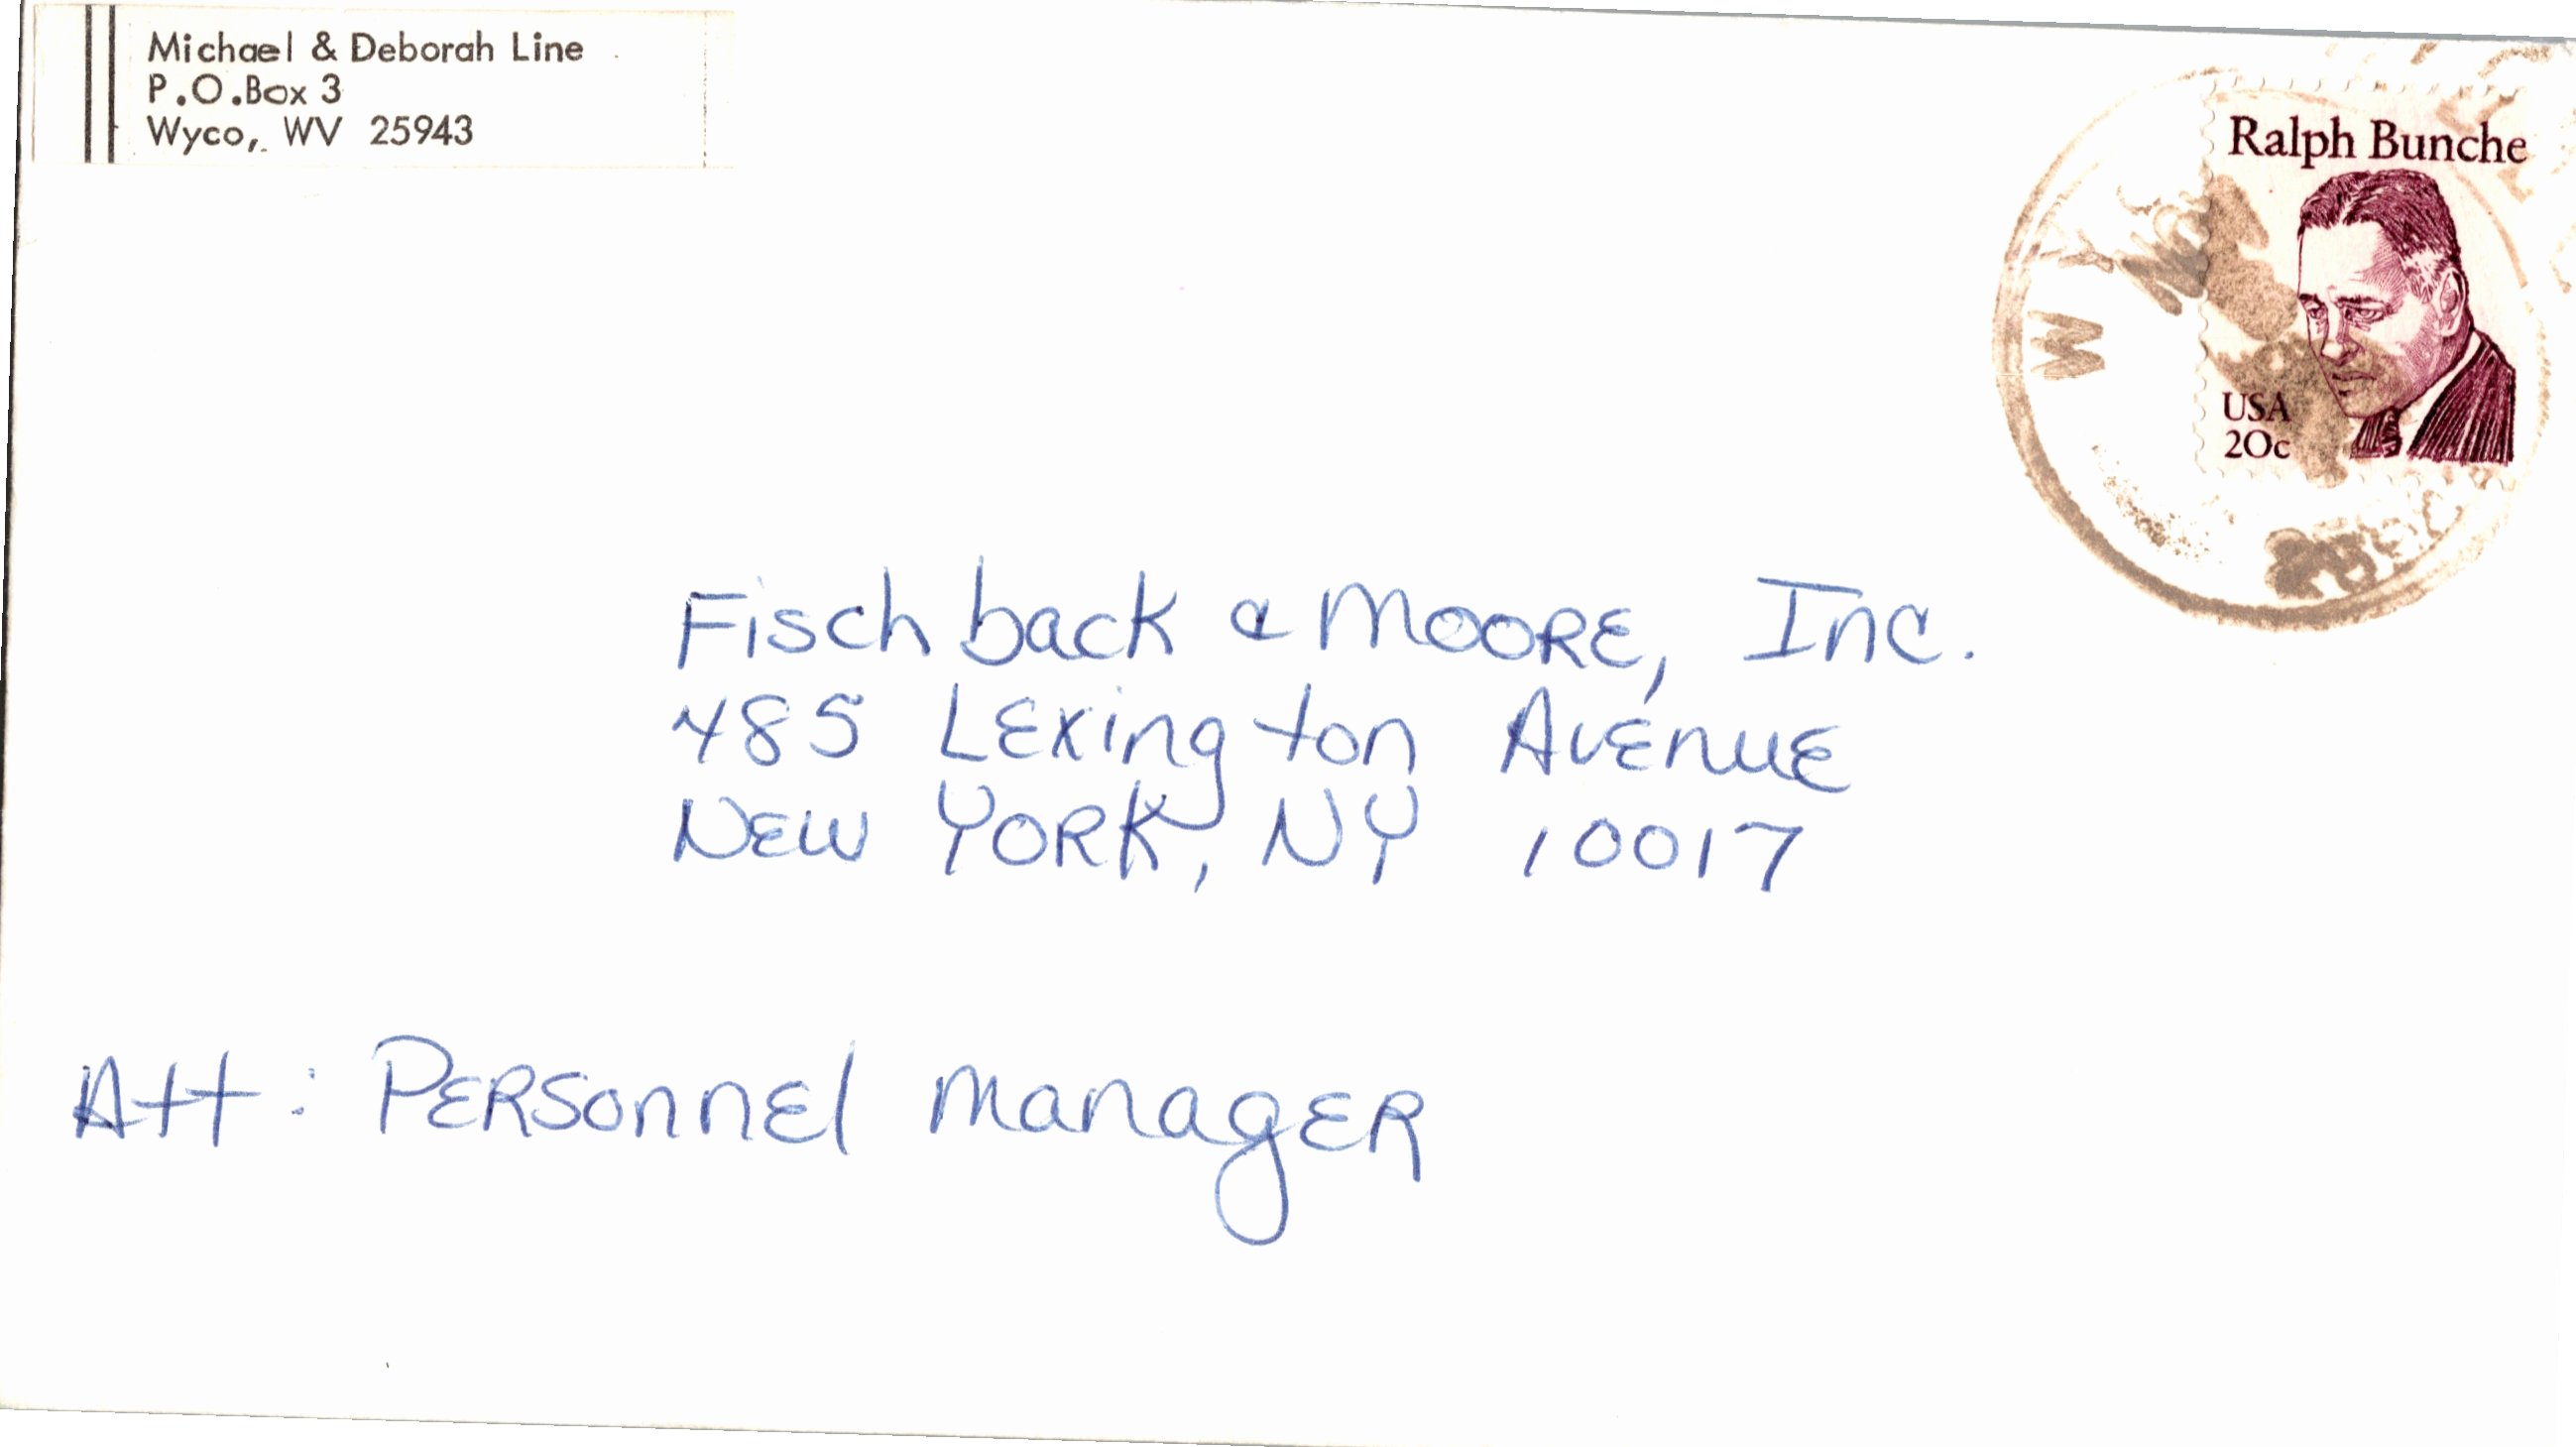 Michael & Deborah Line
P.O.Box 3
Wyco, WV 25943
Ralph Bunche
USA
20c
Fischback & MOORE, Inc.
485 LExington AvEnuE
NEW YORK, NY 10017
Att: PERSonnEl managER